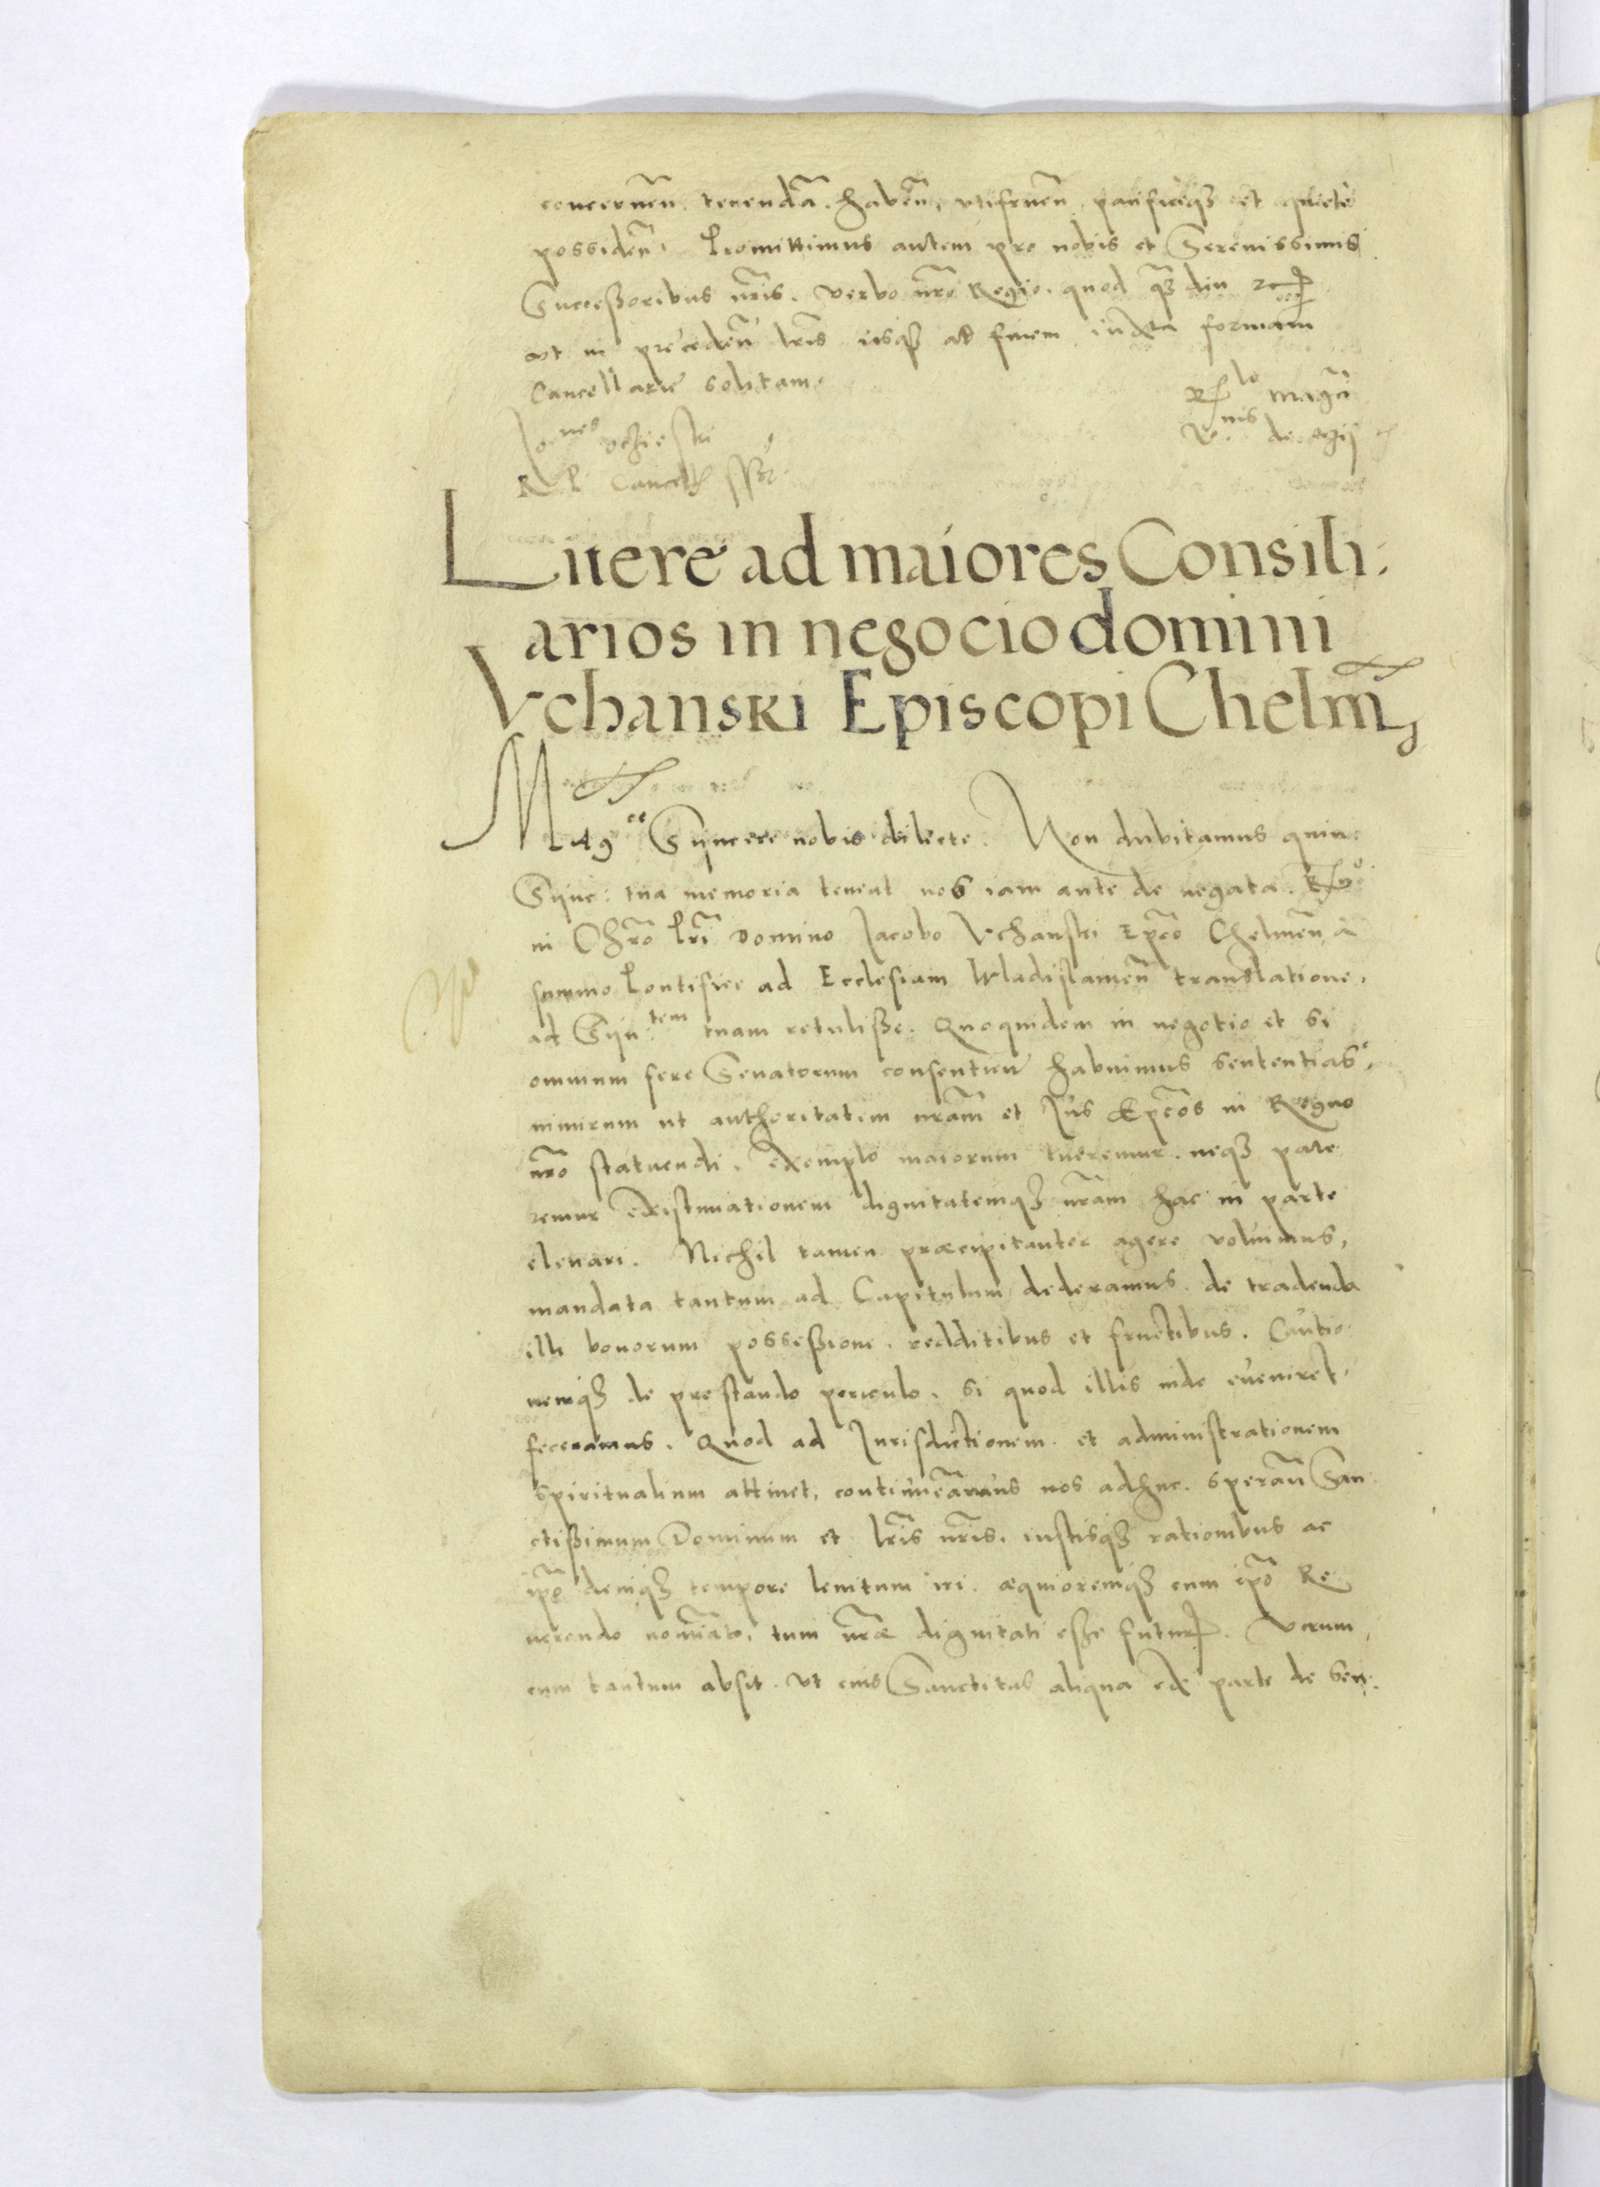 concernen̄. tenendā. haben̄, utifruen̄. pacificeqȝ et quiete
possiden̄. Promittimus autem pro nobis et Serenissimis
Successoribus nr̄is. verbo nr̄o Regio. quod qȝ diu
ut in preceden̄ lr̄is usqȝ ad finem iuxta formam
Cancellarie solitam.
magci
Jo nes Oczieski
R P Cancell ssr
Litere ad maiores Consili:
arios in negocio domini
Vchanski Episcopi Chelm̄,
Mag ce Syncere nobis dilecte. Non dubitamus quin
Sync: tua memoria teneat nos iam ante de negata. Rdo
in Chr̄o Pr̄i Domino Jacobo Vchanski Ep̄co Chelmen̄ à
summo Pontifice ad Ecclesiam Wladislauien̄ translatione.
ad Syn: tem tuam retulisse. Quoquidem in negotio et si
omnium fere Senatorum consentien̄ habuimus sententias,
nimirum ut authoritatem nr̄am et Jus Ep̄cos in Regno
nr̄o statuendi. exemplo maiorum tueremur. neqȝ pate
remur existimationem dignitatemqȝ nr̄am hac in parte
eleuari. Nichil tamen præcipitanter agere voluimus,
mandata tantum ad Capitulum dederamus. de tradenda
illi bonorum possessione. redditibus et fructibus. Cautio
nemqȝ de prestando periculo. si quod illis inde eveniret.
feceramus. Quod ad Jurisdictionem et administrationem
spiritualium attinet, continueramus nos adhuc. speran̄ San
ctissimum Dominum et lr̄is nr̄is. iustisqȝ rationibus ac
ip̄o deniqȝ tempore lenitum iri. æquioremqȝ cum ip̄o Re
uerendo nom̄iato, tum nr̄æ dignitati esse futur. Verum
cum tantum absit. ut eius Sanctitas aliqua ex parte de sen: